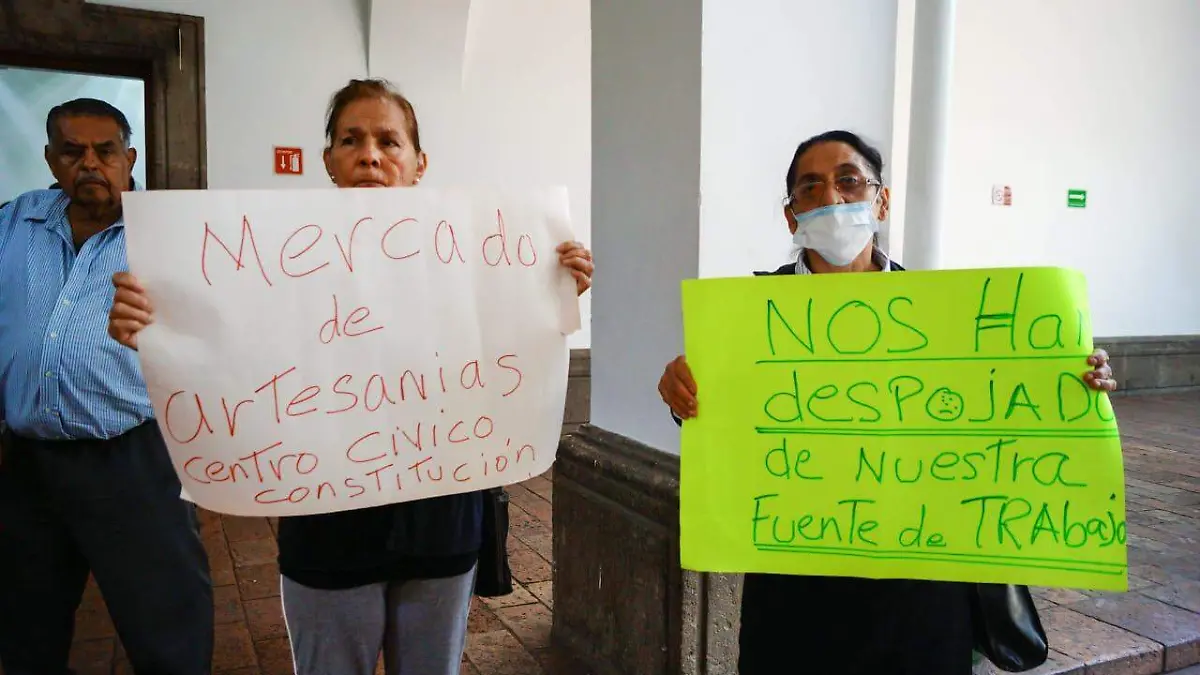 Mercado
de
artesanias
centro civico
constitución
NOS Hai
despojado
de Nuestra
Fuente de TRAbajo